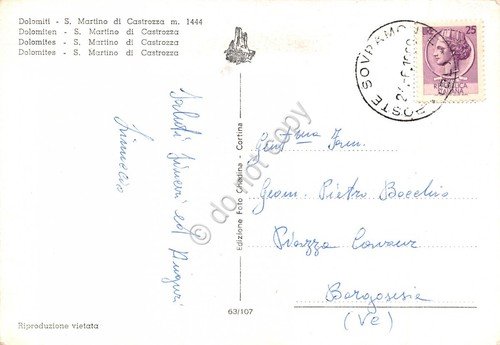 Dolomiti - S. Martino di Castrozza m. 1444
Dolomiten - S. Martino di Castrozza
Dolomites - S. Martino di Castrozza
Dolomites - S. Martino di Castrozza
Saluti sinceri ed Auguri
Edizione Foto Ghedina - Cortina
63/107
Riproduzione vietata
POSTE SOVRAMO
LIRE 25
Gent.ma Fam.
Geom. Pietro Bacchio
Piazza Cavour
Borgosesia
(Vc)
© do not copy